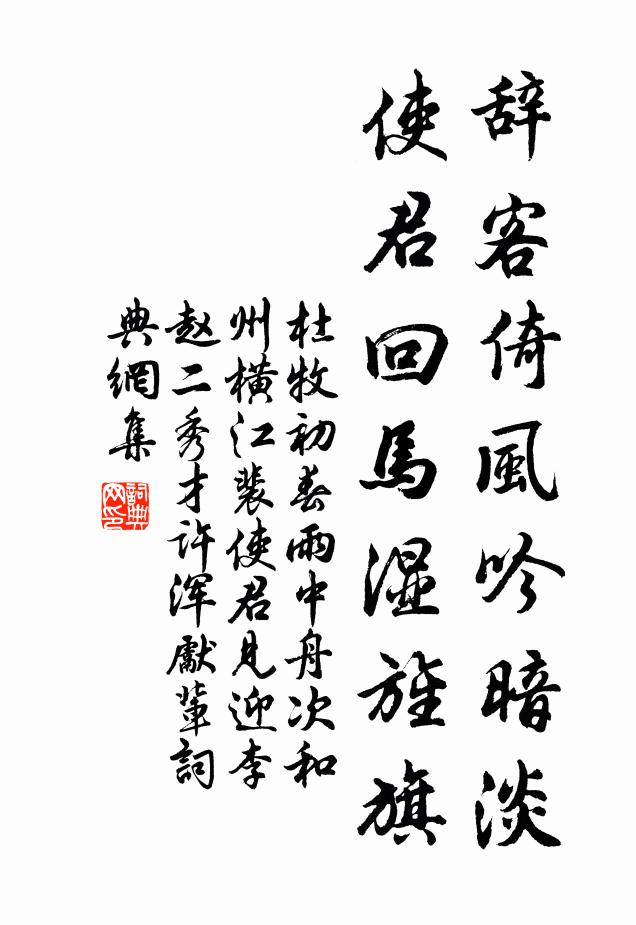 辞客倚風吟暗淡
使君回馬湿旌旗
杜牧初春雨中舟次和
州橫江裴使君見迎李
赵二秀才許浑獻輩詞
典網集
詞典
网印